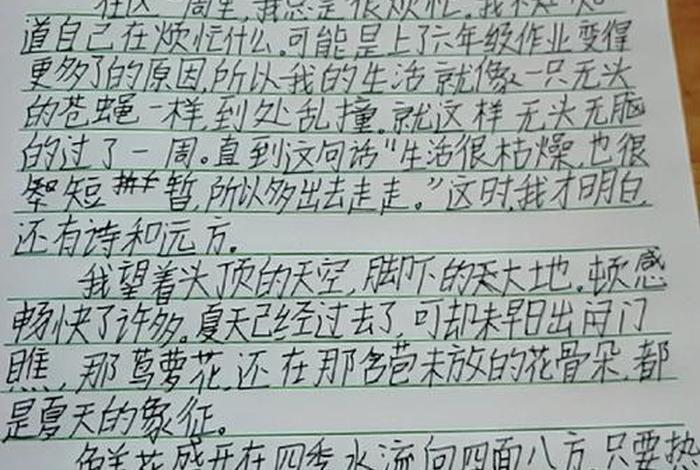 在这一周里,我总是很烦忙。我不知
道自己在烦忙什么。可能是上了六年级作业变得
更多了的原因,所以我的生活就像一只无头
的苍蝇一样,到处乱撞。就这样无头无脑
的过了一周。直到这句话“生活很枯燥,也很
短暂,所以多出去走走。”这时,我才明白,
还有诗和远方。
我望着头顶的天空,脚下的大地。顿感
畅快了许多。夏天已经过去了,可却未早日出闭门
瞧,那莺萝花,还在那含苞未放的花骨朵,都
是夏天的象征。
鲜花盛开在四季,水流向四面八方,只要热